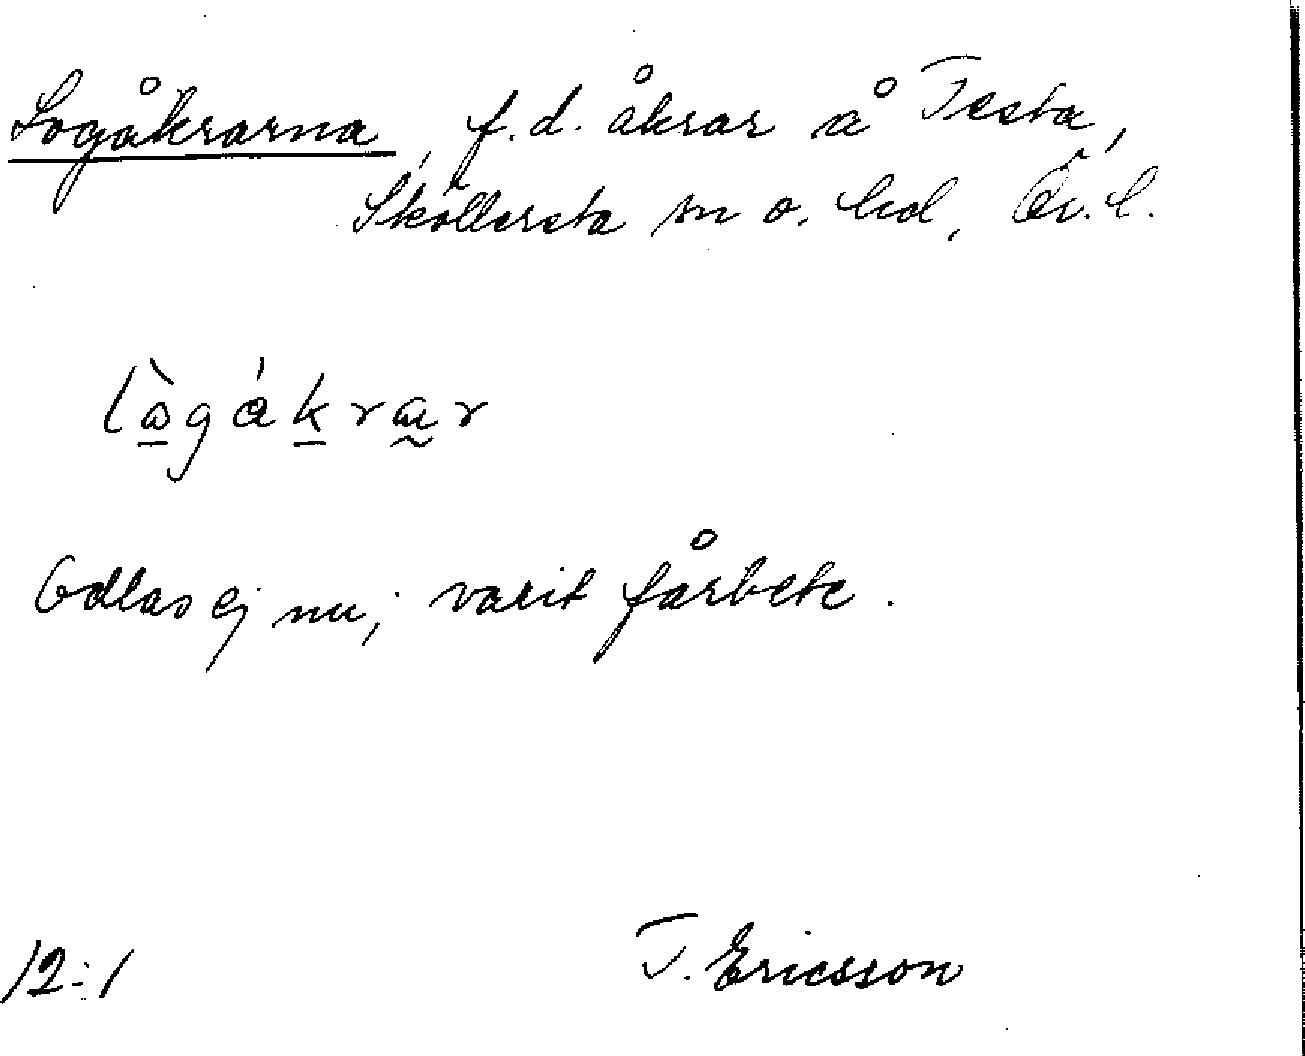 Logåkrarna, f.d. åkrar å Testa,
Sköllersta sn o. hd, Ör. l.
Odlas ej nu; varit fårbete.
12:1
T. Ericsson